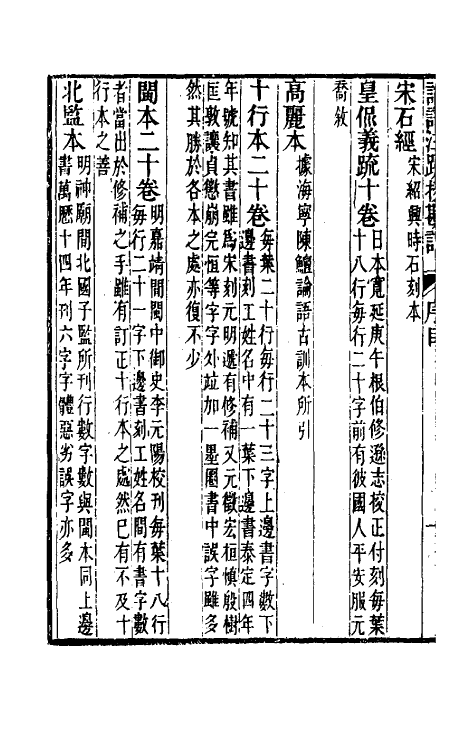 論語注疏校勘記 序目
宋石經
宋紹興時石刻本
皇侃義疏十卷
日本寬延庚午根伯修遜志校正付刻每葉
十八行每行二十字前有彼國人平安服元
喬敘
高麗本
據海寧陳鱣論語古訓本所引
十行本二十卷
每葉二十行每行二十三字上邊書字數下
邊書刻工姓名中有一葉下邊書泰定四年
年號知其書雖爲宋刻元明遞有修補又元徵宏桓愼殷樹
匡敦讓貞懲崩完恒等字字外竝加一墨圈書中誤字雖多
然其勝於各本之處亦復不少
閩本二十卷
明嘉靖間閩中御史李元陽校刊每葉十八行
每行二十一字下邊書刻工姓名間有書字數
者當出於修補之手雖有訂正十行本之處然已有不及十
行本之善
北監本
明神廟間北國子監所刊行數字數與閩本同上邊
書萬曆十四年刊六字字體惡劣誤字亦多